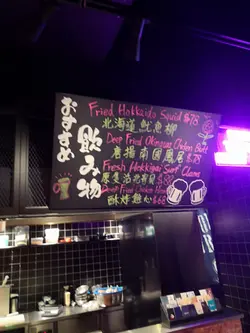 おすすめ
飲み物
Fried Hokkaido Squid $78
北海道魷魚柳
Deep Fried Okinawa Chicken Butt
唐揚南國鳳尾 $78
Fresh Hokkigai Surf Clams
Deep Fried Chicken
酥炸雞心 $68